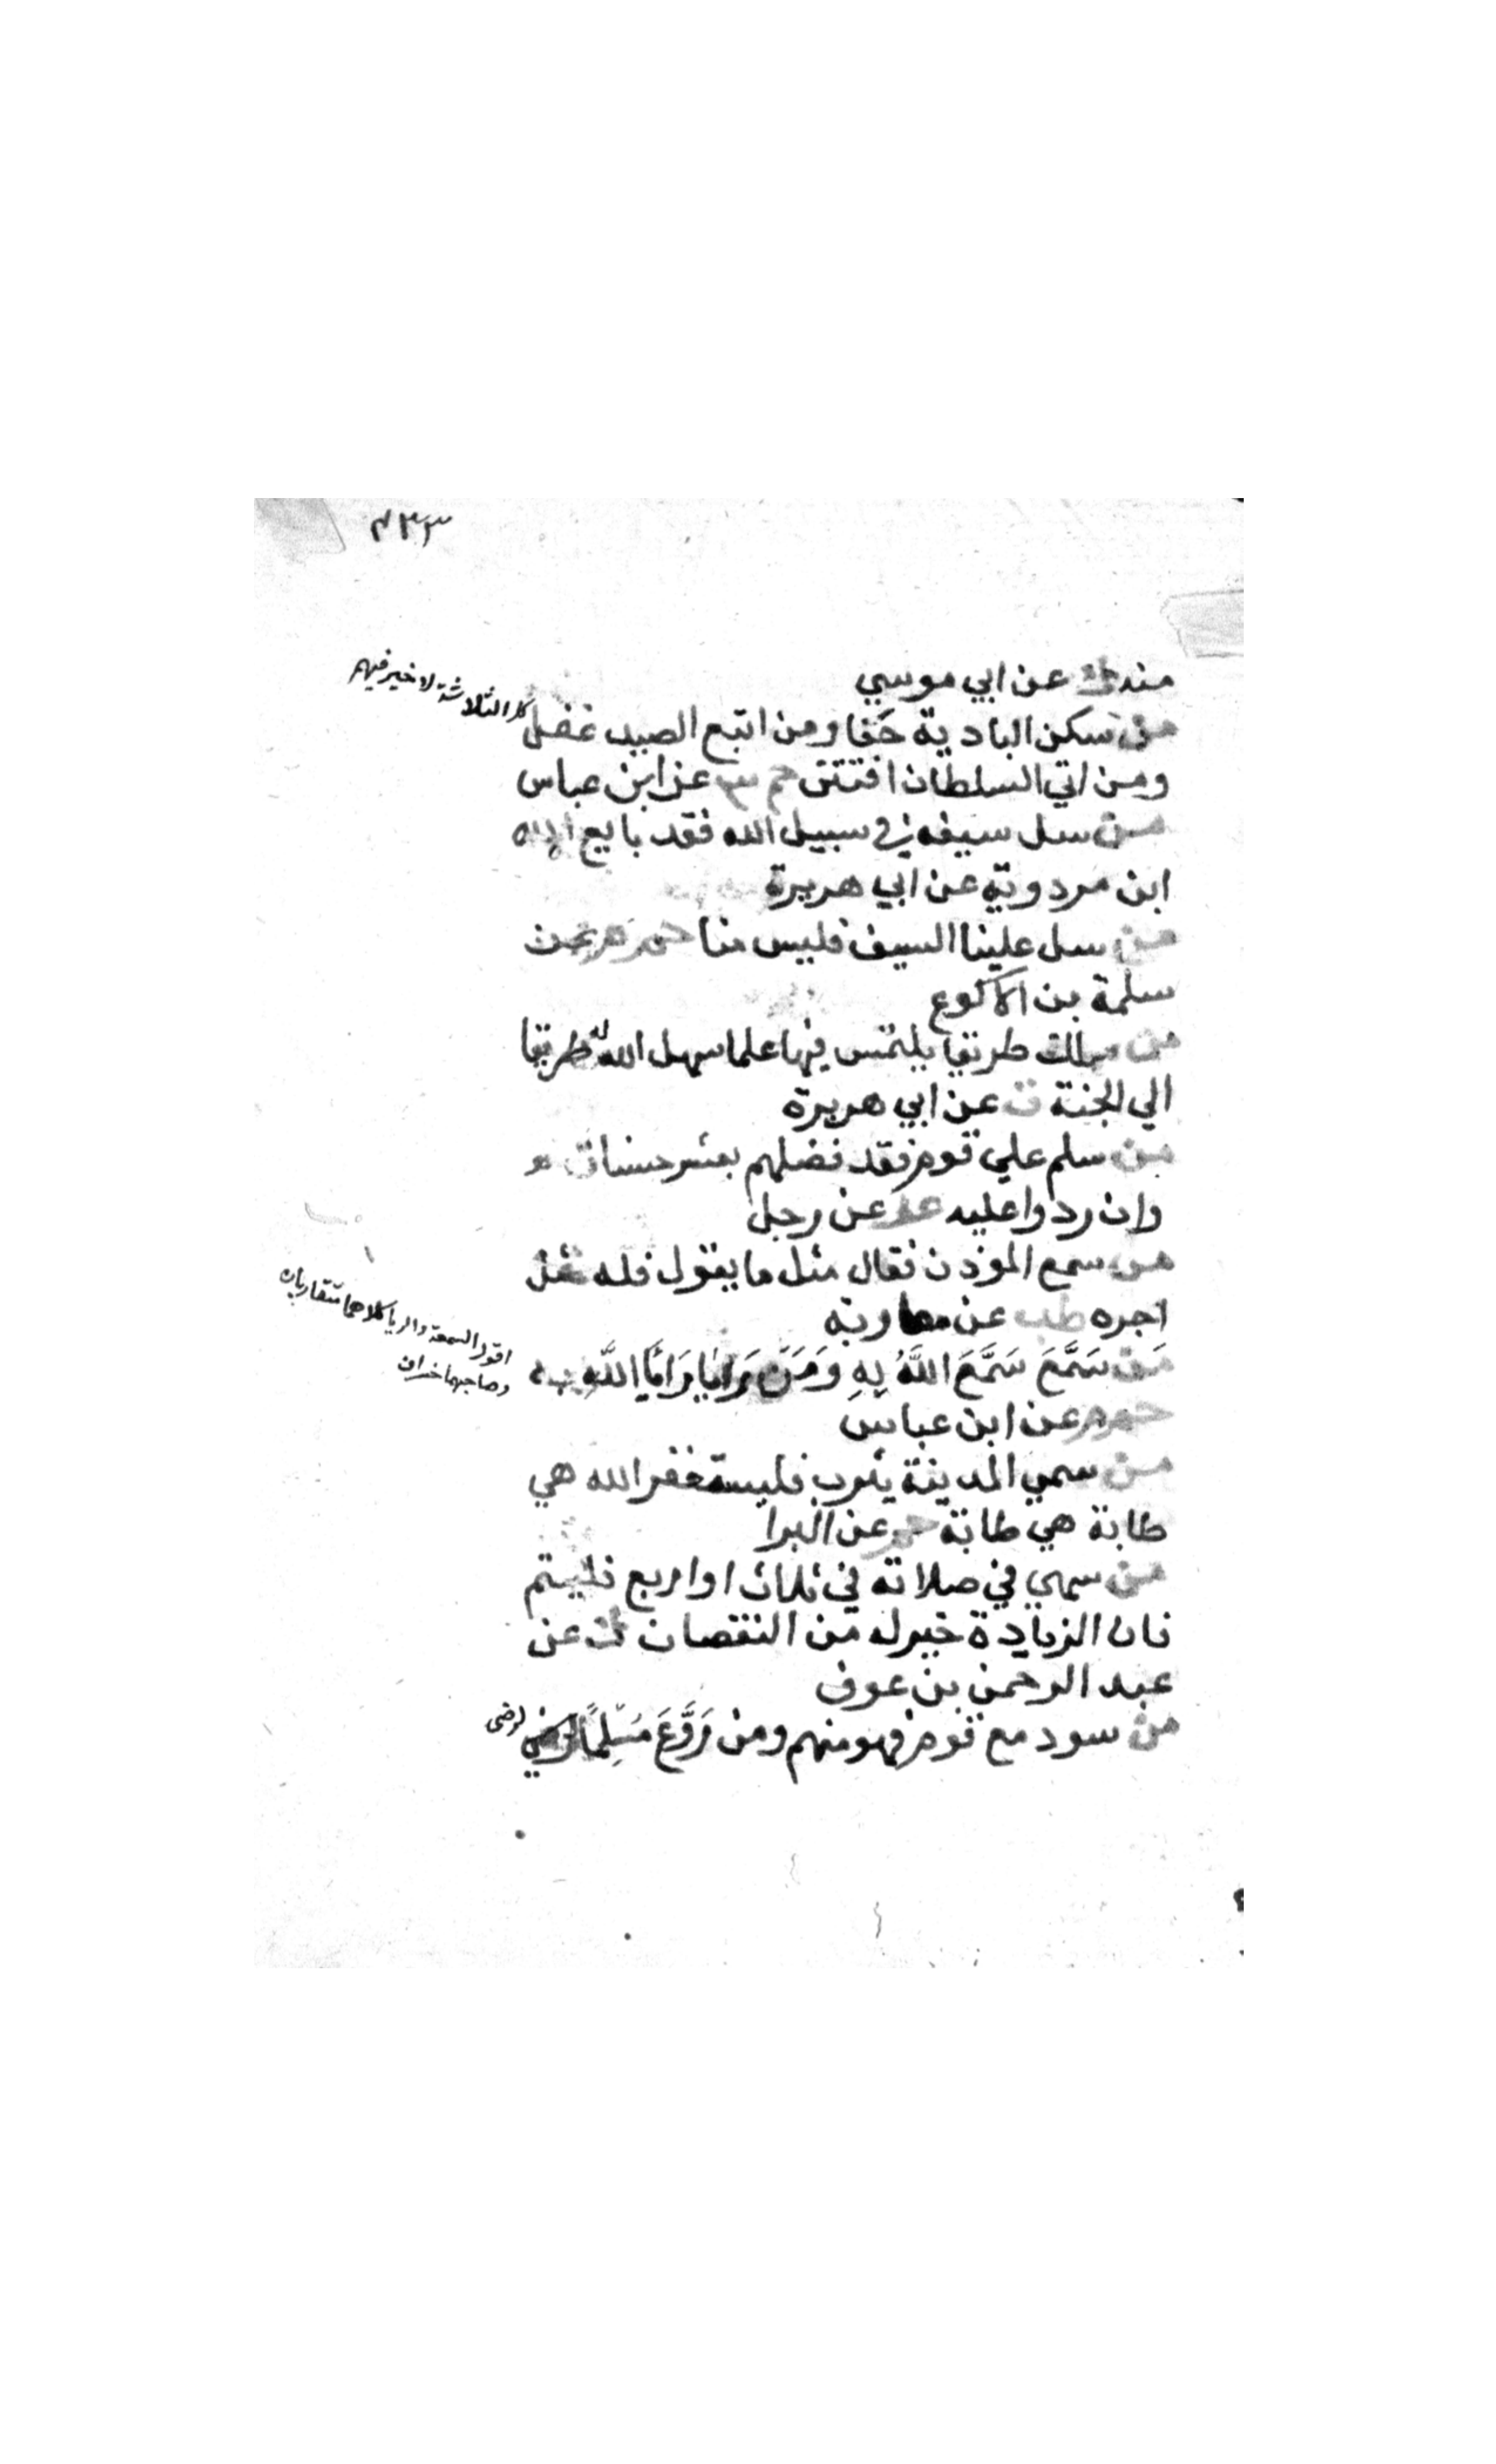 ٤٣٣
منه ك عن ابي موسي
من سكن البادية جفا ومن اتبع الصيد غفل
كل الثلاثة لا خير فيهم
ومن اتي السلطان افتتن حم عن ابن عباس
من سل سيفه في سبيل الله فقد بايع الله
ابن مردويه عن ابي هريرة
من سل علينا السيف فليس منا حم م عن
سلمة بن الاكوع
من سلك طريقا يلتمس فيها علما سهل الله له طريقا
الي الجنة ت عن ابي هريرة
من سلم علي قوم فقد فضلهم بعشر حسنات
وان ردوا عليه عد عن رجل
من سمع الموذن فقال مثل ما يقول فله مثل
اجره طب عن معاوية
من سَمَّعَ سَمَّعَ اللَّهُ بِهِ وَمَن رَايا رَايا اللَّه به
اقول السمعة والريا كلاهما متقاربان
وصاحبهما خسران
حم م عن ابن عباس
من سمي المدينة يثرب فليستغفر الله هي
طابة هي طابة حم عن البرا
من سهي في صلاته في ثلاث او اربع فليتم
فان الزيادة خير له من النقصان ك عن
عبد الرحمن بن عوف
من سود مع قوم فهو منهم ومن رَوَّعَ مُسْلِمًا لرضي
لرضى